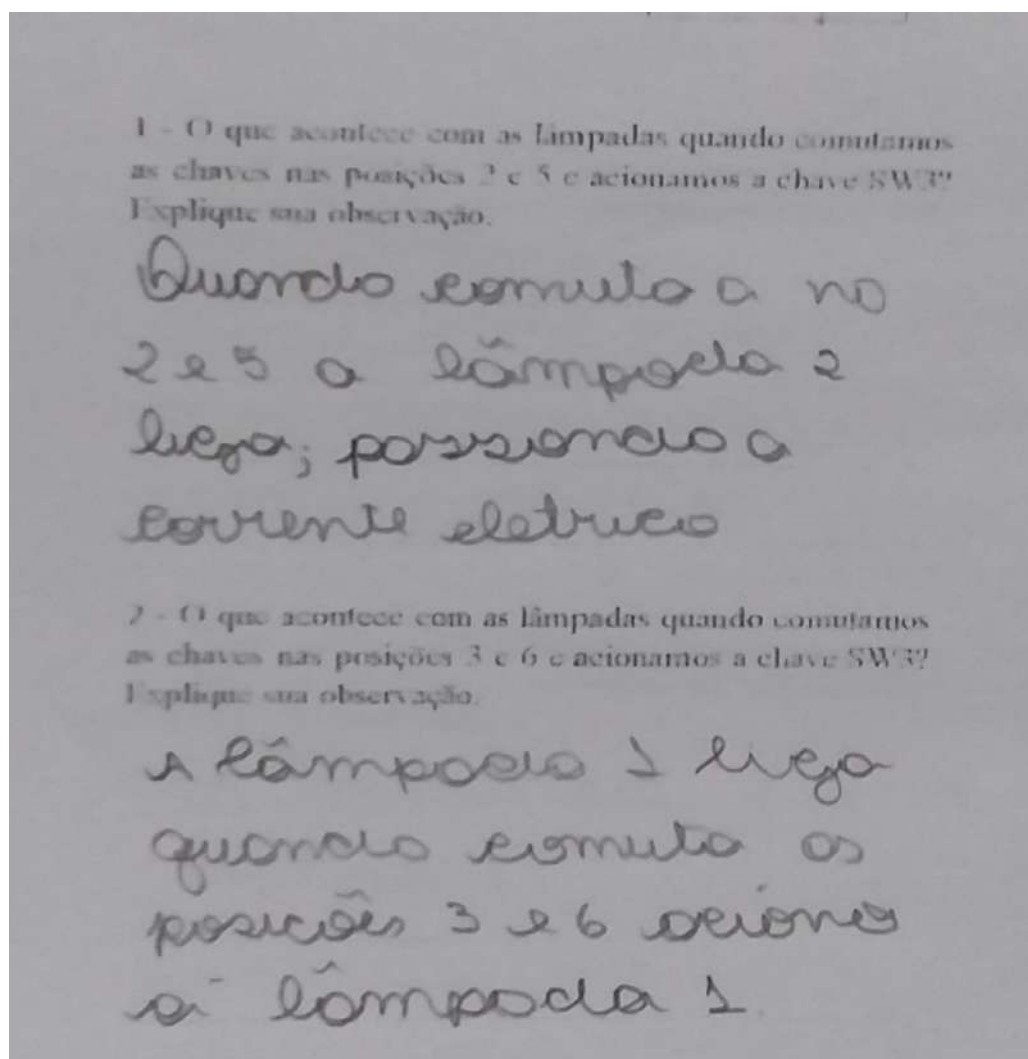 1 - O que acontece com as lâmpadas quando comutamos
as chaves nas posições 2 e 5 e acionamos a chave SW3?
Explique sua observação.
Quando comuta a no
2 e 5 a lâmpada 2
liga; passando a
corrente eletrica
2 - O que acontece com as lâmpadas quando comutamos
as chaves nas posições 3 e 6 e acionamos a chave SW3?
Explique sua observação.
A lâmpada 1 liga
quando comuta as
posições 3 e 6 aciona
a lâmpada 1.